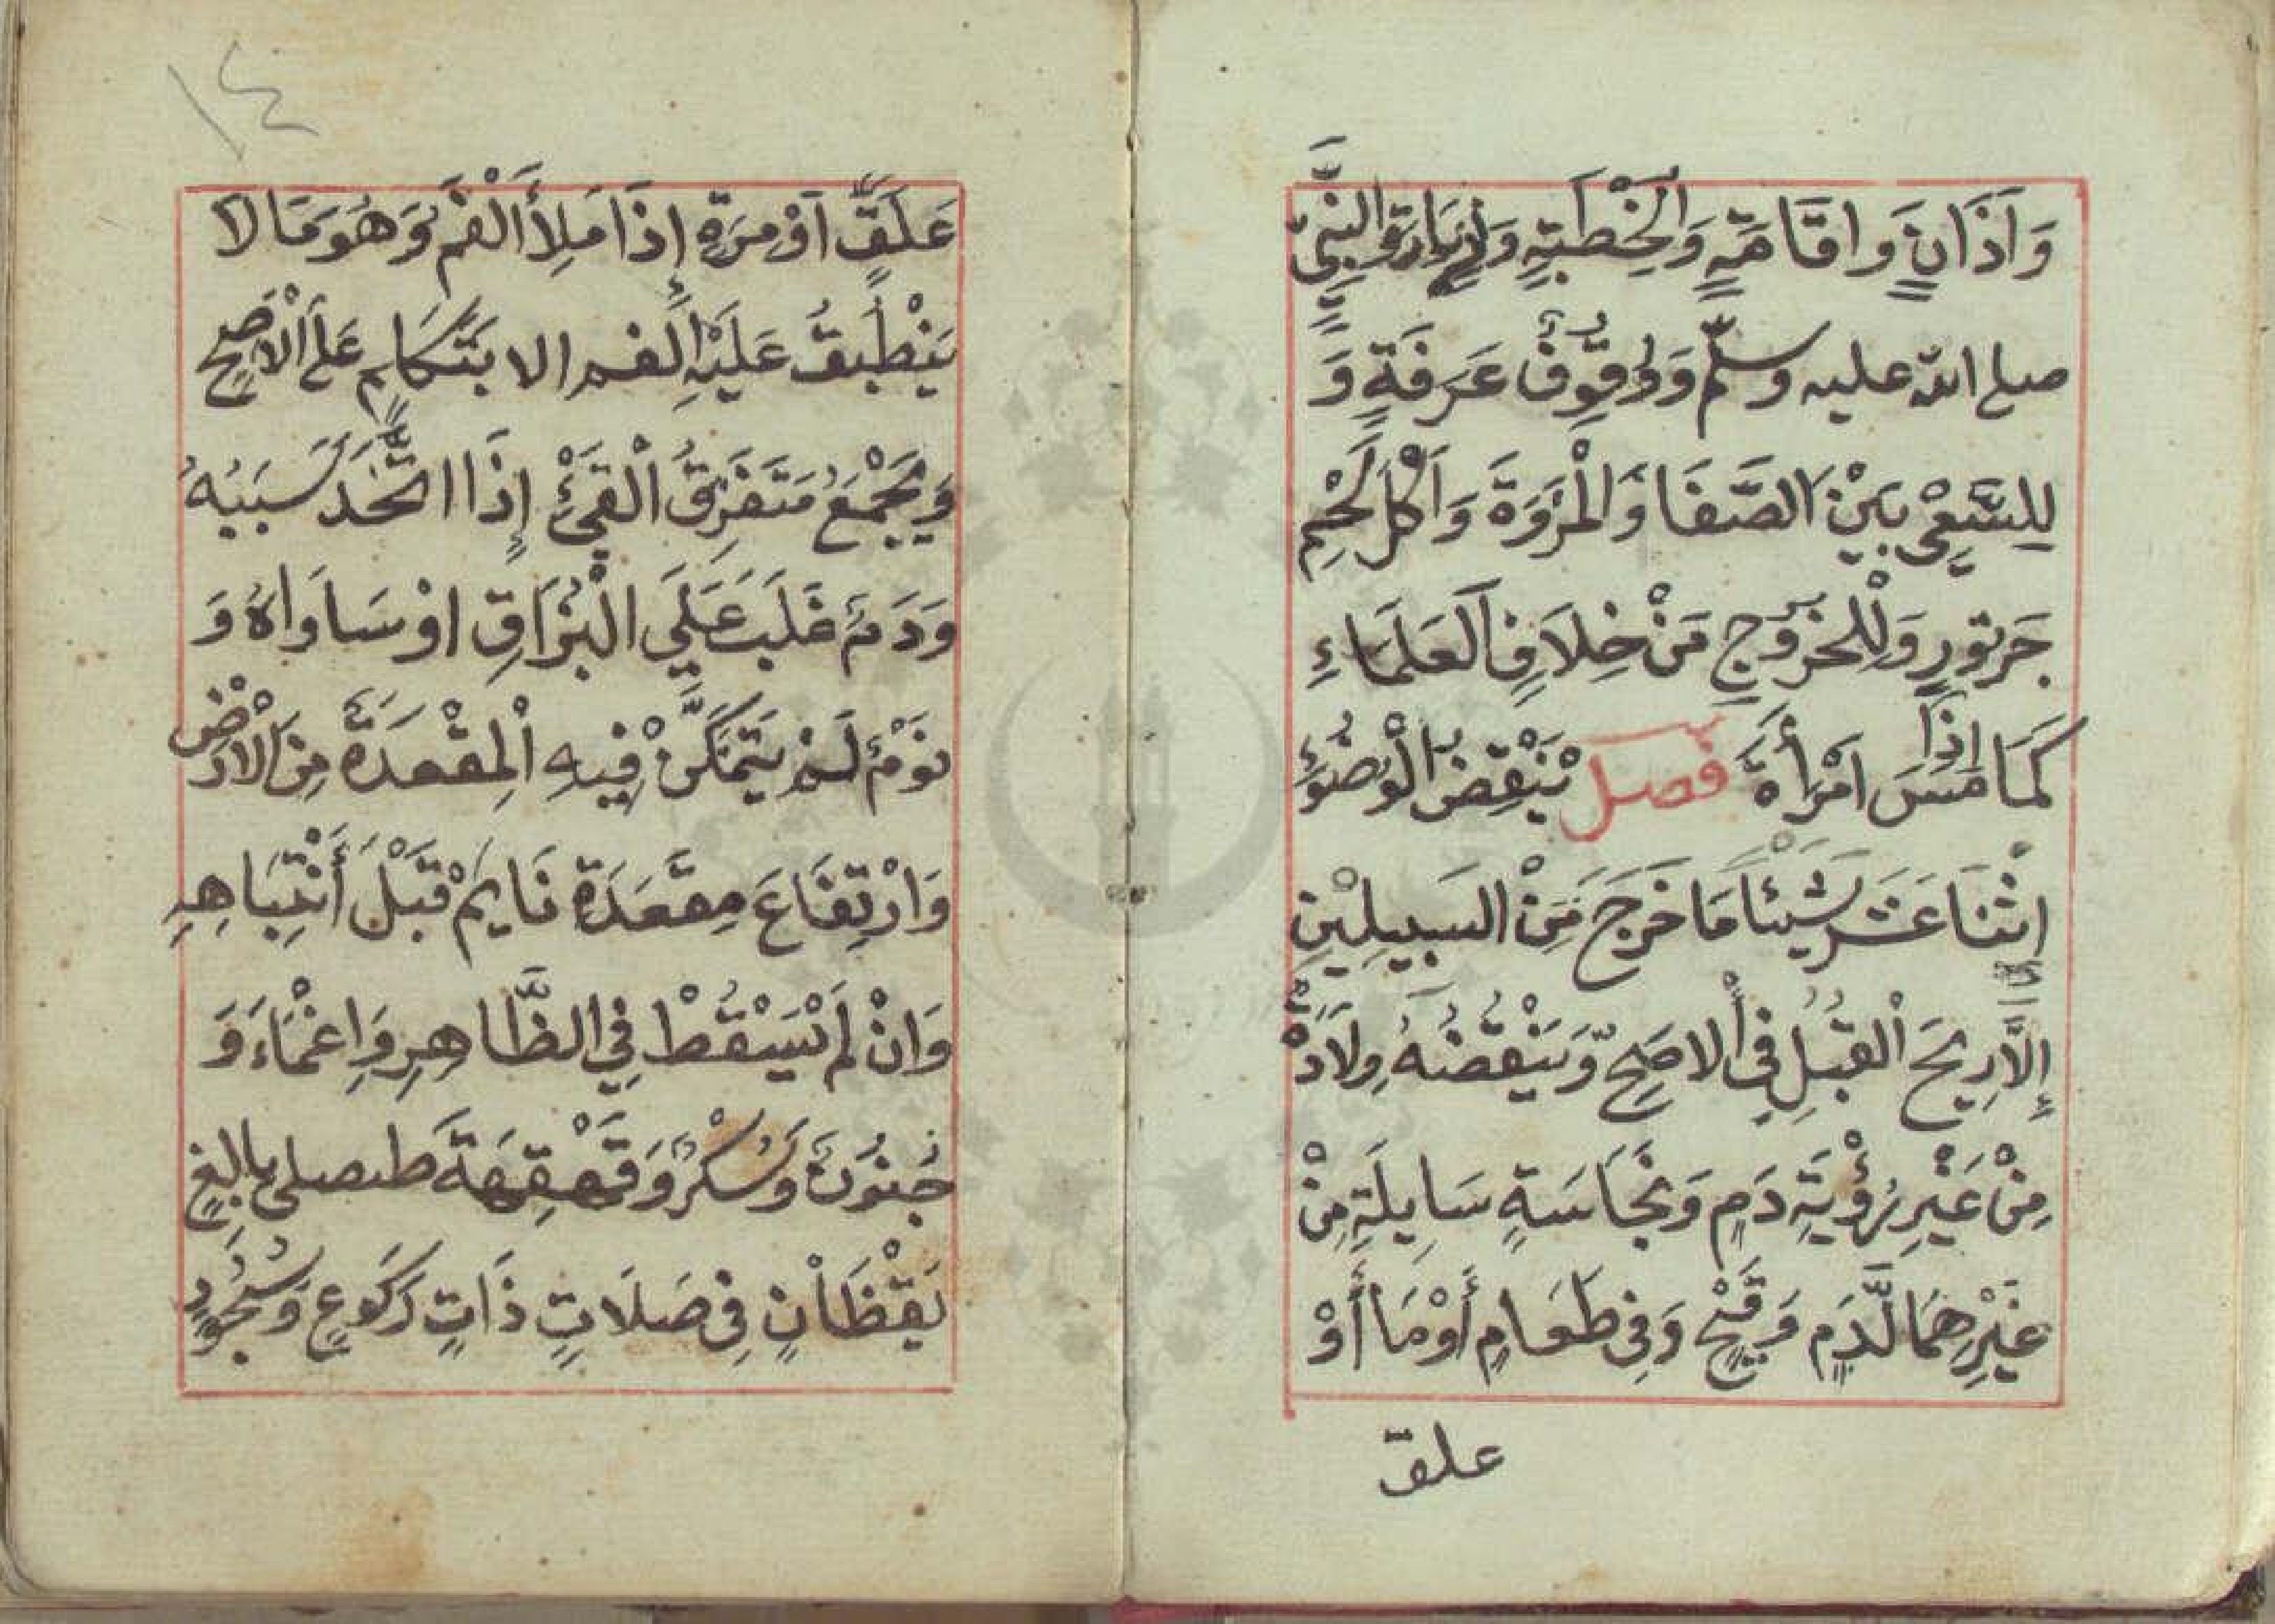 وَاَذَانٍ وَاقَامَةٍ وَالخِطَبَةٍ وَلِزِيَارَةِ النَّبِيّ
صلى الله عليه وسلّم وَلِوُقُوفْ عَرَفَةٍ وَ
لِلسَّعْيِ بَيْنَ الصَّفَا وَالْمَرْوَةَ وَاَكْلَ لَحْمِ
جَزُورٍ وَلِلْخُرُوجِ مَنْ خِلَافٍ اَلعَلَمَاءِ
كَمَا إذَا مَسَ امْرَأَةً فصل يَنْقِضُ الْوُضُوءُ
اِثْنَا عَشَرَ شَيْئاً مَا خَرَجَ مَِنْ السَبِيلِيْنِ
إِلَّا رِيحَ الْقُبُلِ فِي الاصَحِّ وَيَنْقُضُهُ وِلَادَةْ
مِنْ غَيْرِ رُؤْيَةِ دَمٍ وَنَجَاسَةٍ سَايِلَةٍ مِنْ
غَيْرِهِمَا لَدَمٍ وَقَيْحٍ وَفِى طَعَامٍ أَوْ مَا أَوْ
علق
١٤
عَلَقٍّ اَوْ مرَةٍ إِذَا مَلِأَ اَلْفَمَ وَهُوَ مَا لا
يَنْطَبِقُ عَلَيْهِ الفم الا بَتَّكَلم عَلَى الْاَصَحِّ
وَيَجْمَعُ مَتَفَرِقُ الْقَيْئْ إِذَا اتَّحَدَ سَبَبَهُ
وَدَمٌ غَلَبَ عَلَي الْبُزَاقِ اوْ سَاوَاهُ وَ
نوَمٌ لَمْ يَتَمَكَّنْ فِيهِ الْمِقْعَدَةُ مِنَ الْاَرْضِ
وَارْتِفَاعَ مِقَعَدَةِ نَايمْ قَبْلَ أَنْتِبَاهِهِ
وَانْ لَمْ يَسْقُطْ فِي الظَّاهِرِ وَاِغْمَاءَ وَ
جُنوُنٌ وَسُكْرٌ وَقَهْقِهَةَ مصلى بالِغٍ
يَقْظَانٍ فِى صَلَاتٍ ذَاتٍ رَكَوعٍ وَسُجُودٍ